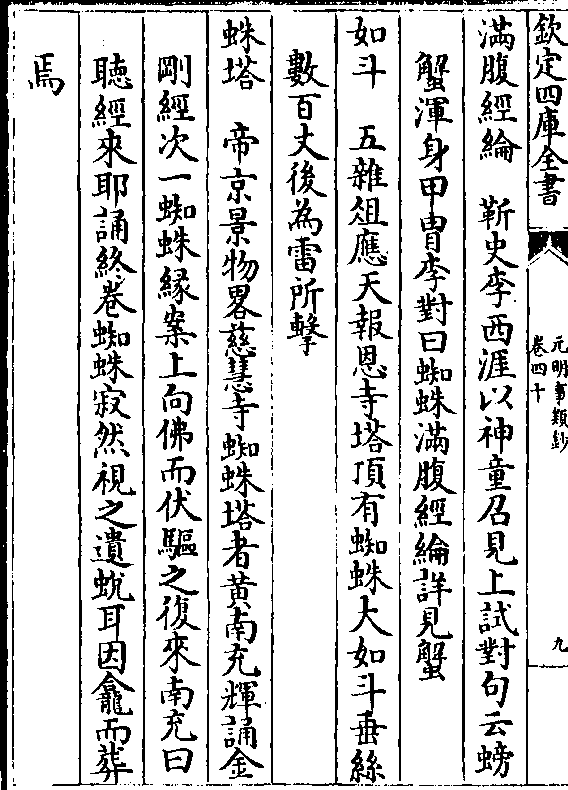 欽定四庫全書
元明事類鈔
卷四十
九
滿腹經綸　靳史李西涯以神童召見上試對句云螃
蟹渾身甲胄李對曰蜘蛛滿腹經綸詳見蟹
如斗　五雜俎應天報恩寺塔頂有蜘蛛大如斗垂絲
數百丈後為雷所擊
蛛塔　帝京景物畧慈慧寺蜘蛛塔者黄南充輝誦金
剛經次一蜘蛛緣案上向佛而伏驅之復來南充曰
聽經來耶誦終卷蜘蛛寂然視之遺蛻耳因龕而葬
焉